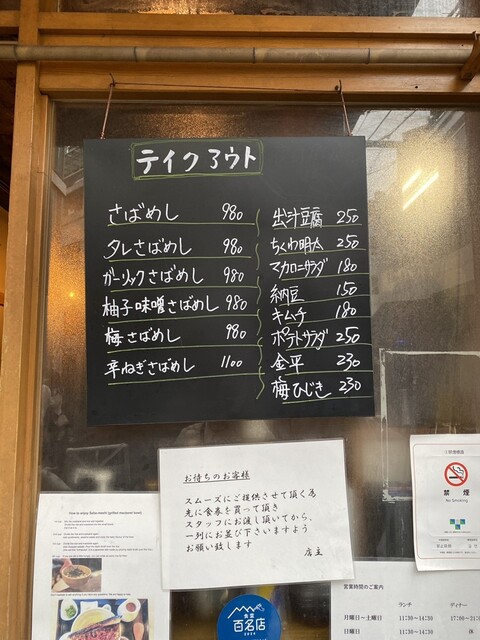 テイクアウト
さばめし 980
タレさばめし 980
ガーリックさばめし 980
柚子味噌さばめし 980
梅さばめし 980
辛ねぎさばめし 1100
出汁豆腐 250
ちくわ明太 250
マカロニサラダ 180
納豆 150
キムチ 180
ポテトサラダ 250
金平 230
梅ひじき 230
お待ちのお客様
スムーズにご提供させて頂く為
先に食券を買って頂き
スタッフにお渡し頂いてから、
一列にお並び下さいますよう
お願い致します
店主
禁煙
食堂
百名店
営業時間のご案内
ランチ ディナー
月曜日～土曜日 11:30～14:30 17:00～
日曜日 11:30～ 休